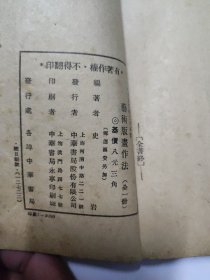 有著作權・不得翻印
藝術版畫作法（全一冊）
◎基價八元三角
（郵運匯費另加）
編著者 史岩
發行者 中華書局股份有限公司
印刷者 中華書局永寧印刷廠
上海澳門路四七七號
發行處 各埠中華書局
【全書終】